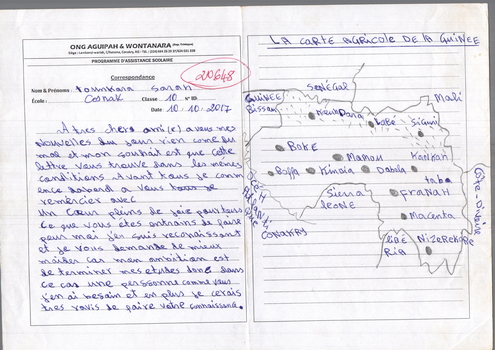 ONG AGUIPAH & WONTANARA
PROGRAMME D'ASSISTANCE SCOLAIRE
Correspondance
20648
Nom & Prénoms : Tounkara Sarah
École : Cosnak Classe 10 N° ID:
Date : 10.10.2017
A tres chers ami(e) a vous mes
nouvelles du jour rien come du
mal et mon souhait est que cette
lettre vous trouve dans les mêmes
conditions Avant tous je comm
ence d'abord a vous
remercier avec
Un cœur pleins de joie pour tous
ce que vous êtes entrains de faire
pour moi j'en suis reconnaissant
et je vous demande de mieux
m'aider car mon ambition est
de terminer mes etudes donc dans
ce cas une perssonne comme vous
j'en ai besoin et en plus je serais
tres ravis de faire votre connaissanc.
LA CARTE AGRICOLE DE LA GUINEE
SENÉGAL
GUINEE
Bissau
Mali
Labé
Siguiri
BOKE
Mamou
KanKan
Boffa
Kindia
Dabola
FRANAH
Sierra
leone
Macenta
CONAKRY
liBE
RIA
NiZEREKORE
Côte D'ivoire